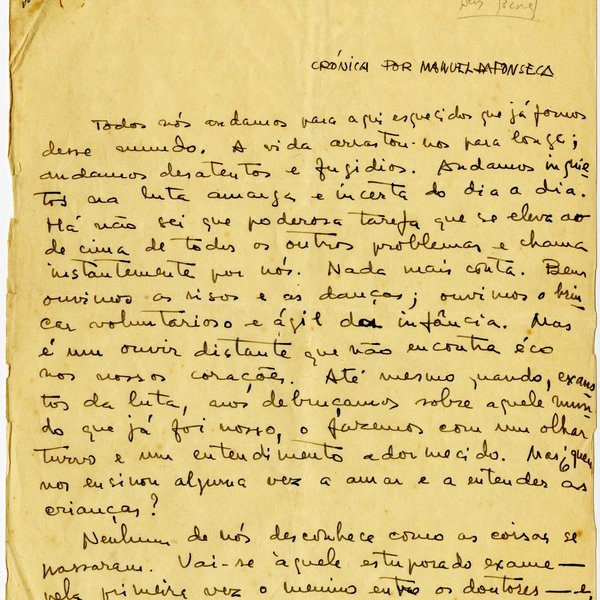 CRÓNICA POR MANUEL DA FONSECA
Todos nós andamos para aqui esquecidos que já fomos
desse mundo. A vida arrastou-nos para longe;
andamos desatentos e fugidios. Andamos inquie-
tos na luta amarga e incerta do dia a dia.
Há não sei que poderosa tarefa que se eleva ao
de cima de todos os outros problemas e chama
instantemente por nós. Nada mais conta. Bem
ouvimos os risos e as danças; ouvimos o brin-
car voluntarioso e ágil da infância. Mas
é um ouvir distante que não encontra éco
nos nossos corações. Até mesmo quando, exaus-
tos da luta, nos debruçamos sobre aquele mun-
do que já foi nosso, o fazemos com um olhar
turvo e um entendimento adormecido. Mas, quem
nos ensinou alguma vez a amar e a entender as
crianças?
Nenhum de nós desconhece como as coisas se
passaram. Vai-se àquele estuporado exame —
pela primeira vez o menino entre os doutores — e,